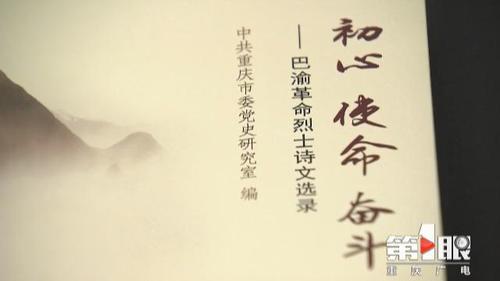 初心 使命 奋斗
——巴渝革命烈士诗文选录
中共重庆市委党史研究室 编
第1眼
重庆广电